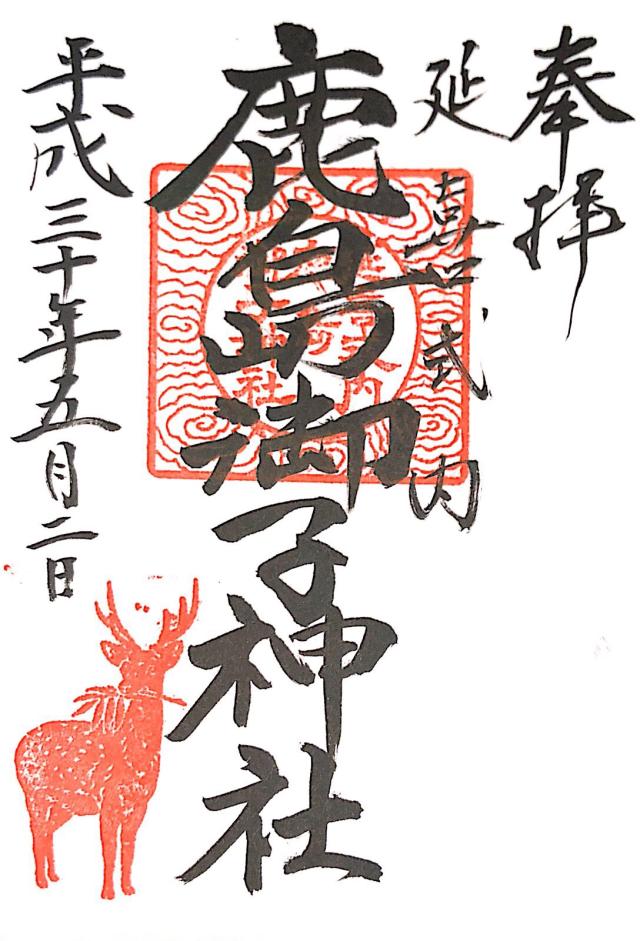 奉拝
延喜式内
鹿島御子神社
平成三十年五月二日